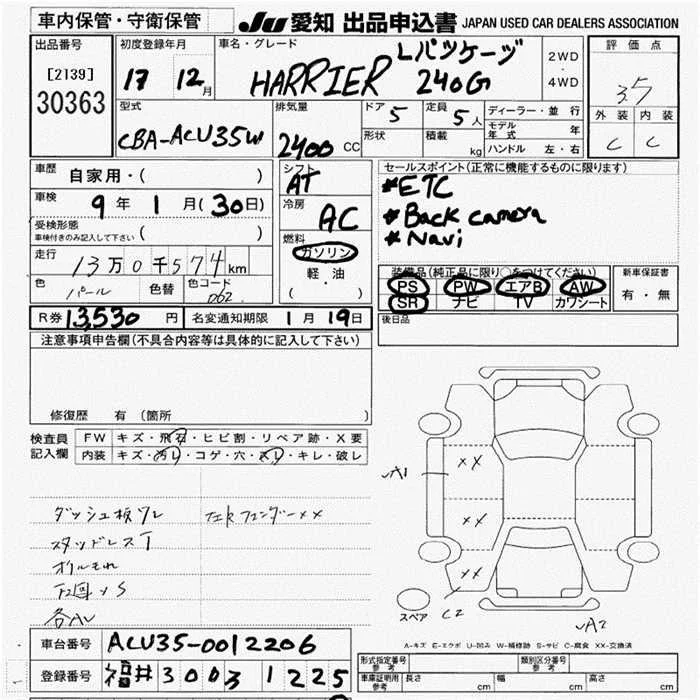 車内保管・守衛保管
JU 愛知 出品申込書 JAPAN USED CAR DEALERS ASSOCIATION
出品番号 初度登録年月 車名・グレード 評価点
[2139] 17 12月 HARRIER Lパッケージ 240G 2WD・4WD 3.5
30363
外装 内装
C C
型式 排気量 ドア 5 定員 5人 ディーラー・並行
CBA-ACU35W 2400 CC 形状 積載 kg モデル年式 年
ハンドル 左・右
車歴 自家用・( ) シフト AT セールスポイント(正常に機能するものに限ります)
車検 9年 1月(30日) 冷房 AC *ETC
受検形態 ( ) *Back camera
車検付きのみ記入して下さい *Navi
走行 13万0千574km 燃料 ガソリン 軽・油 ( )
色 パール 色替 色コード 062
装備品(純正品に限り○をつけてください) 新車保証書
PS PW エアB AW 有・無
SR ナビ TV カワシート
R券 13,530円 名変通知期限 1月19日 後日品
注意事項申告欄(不具合内容等は具体的に記入して下さい)
修復歴 有 (箇所
検査員記入欄 FW キズ・飛石・ヒビ割・リペア跡・X要
内装 キズ・汚レ・コゲ・穴・スレ・キレ・破レ
ダッシュ板ワレ 左Rフェンダーxx
スタッドレスT
オイルもれ
下回りS
各AU
A1
xx
xx
xx
スペア C2
A2
A-キズ E-エクボ U-凹み W-補修跡 S-サビ C-腐食 XX-交換済
車台番号 ACU35-0012206
登録番号 福井3003 1225
形式指定番号 参考 類別区分番号 参考
車庫証明用 参考 長さ cm 幅 cm 高さ cm